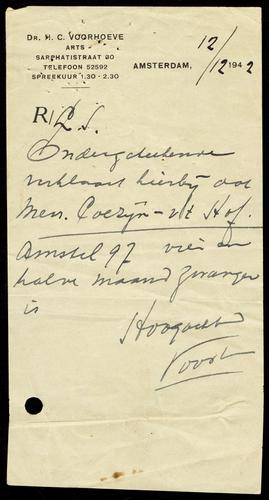 DR. H. C. VOORHOEVE
ARTS
SARPHATISTRAAT 90
TELEFOON 52592
SPREEKUUR 1.30 - 2.30
AMSTERDAM, 12/12 1942
R/ L.S.
Ondergeteekende
verklaart hierbij dat
Mevr. Coezijn - v.t Hof.
Amstel 97 vier en
halve maand zwanger
is
Hoogacht
Voorh